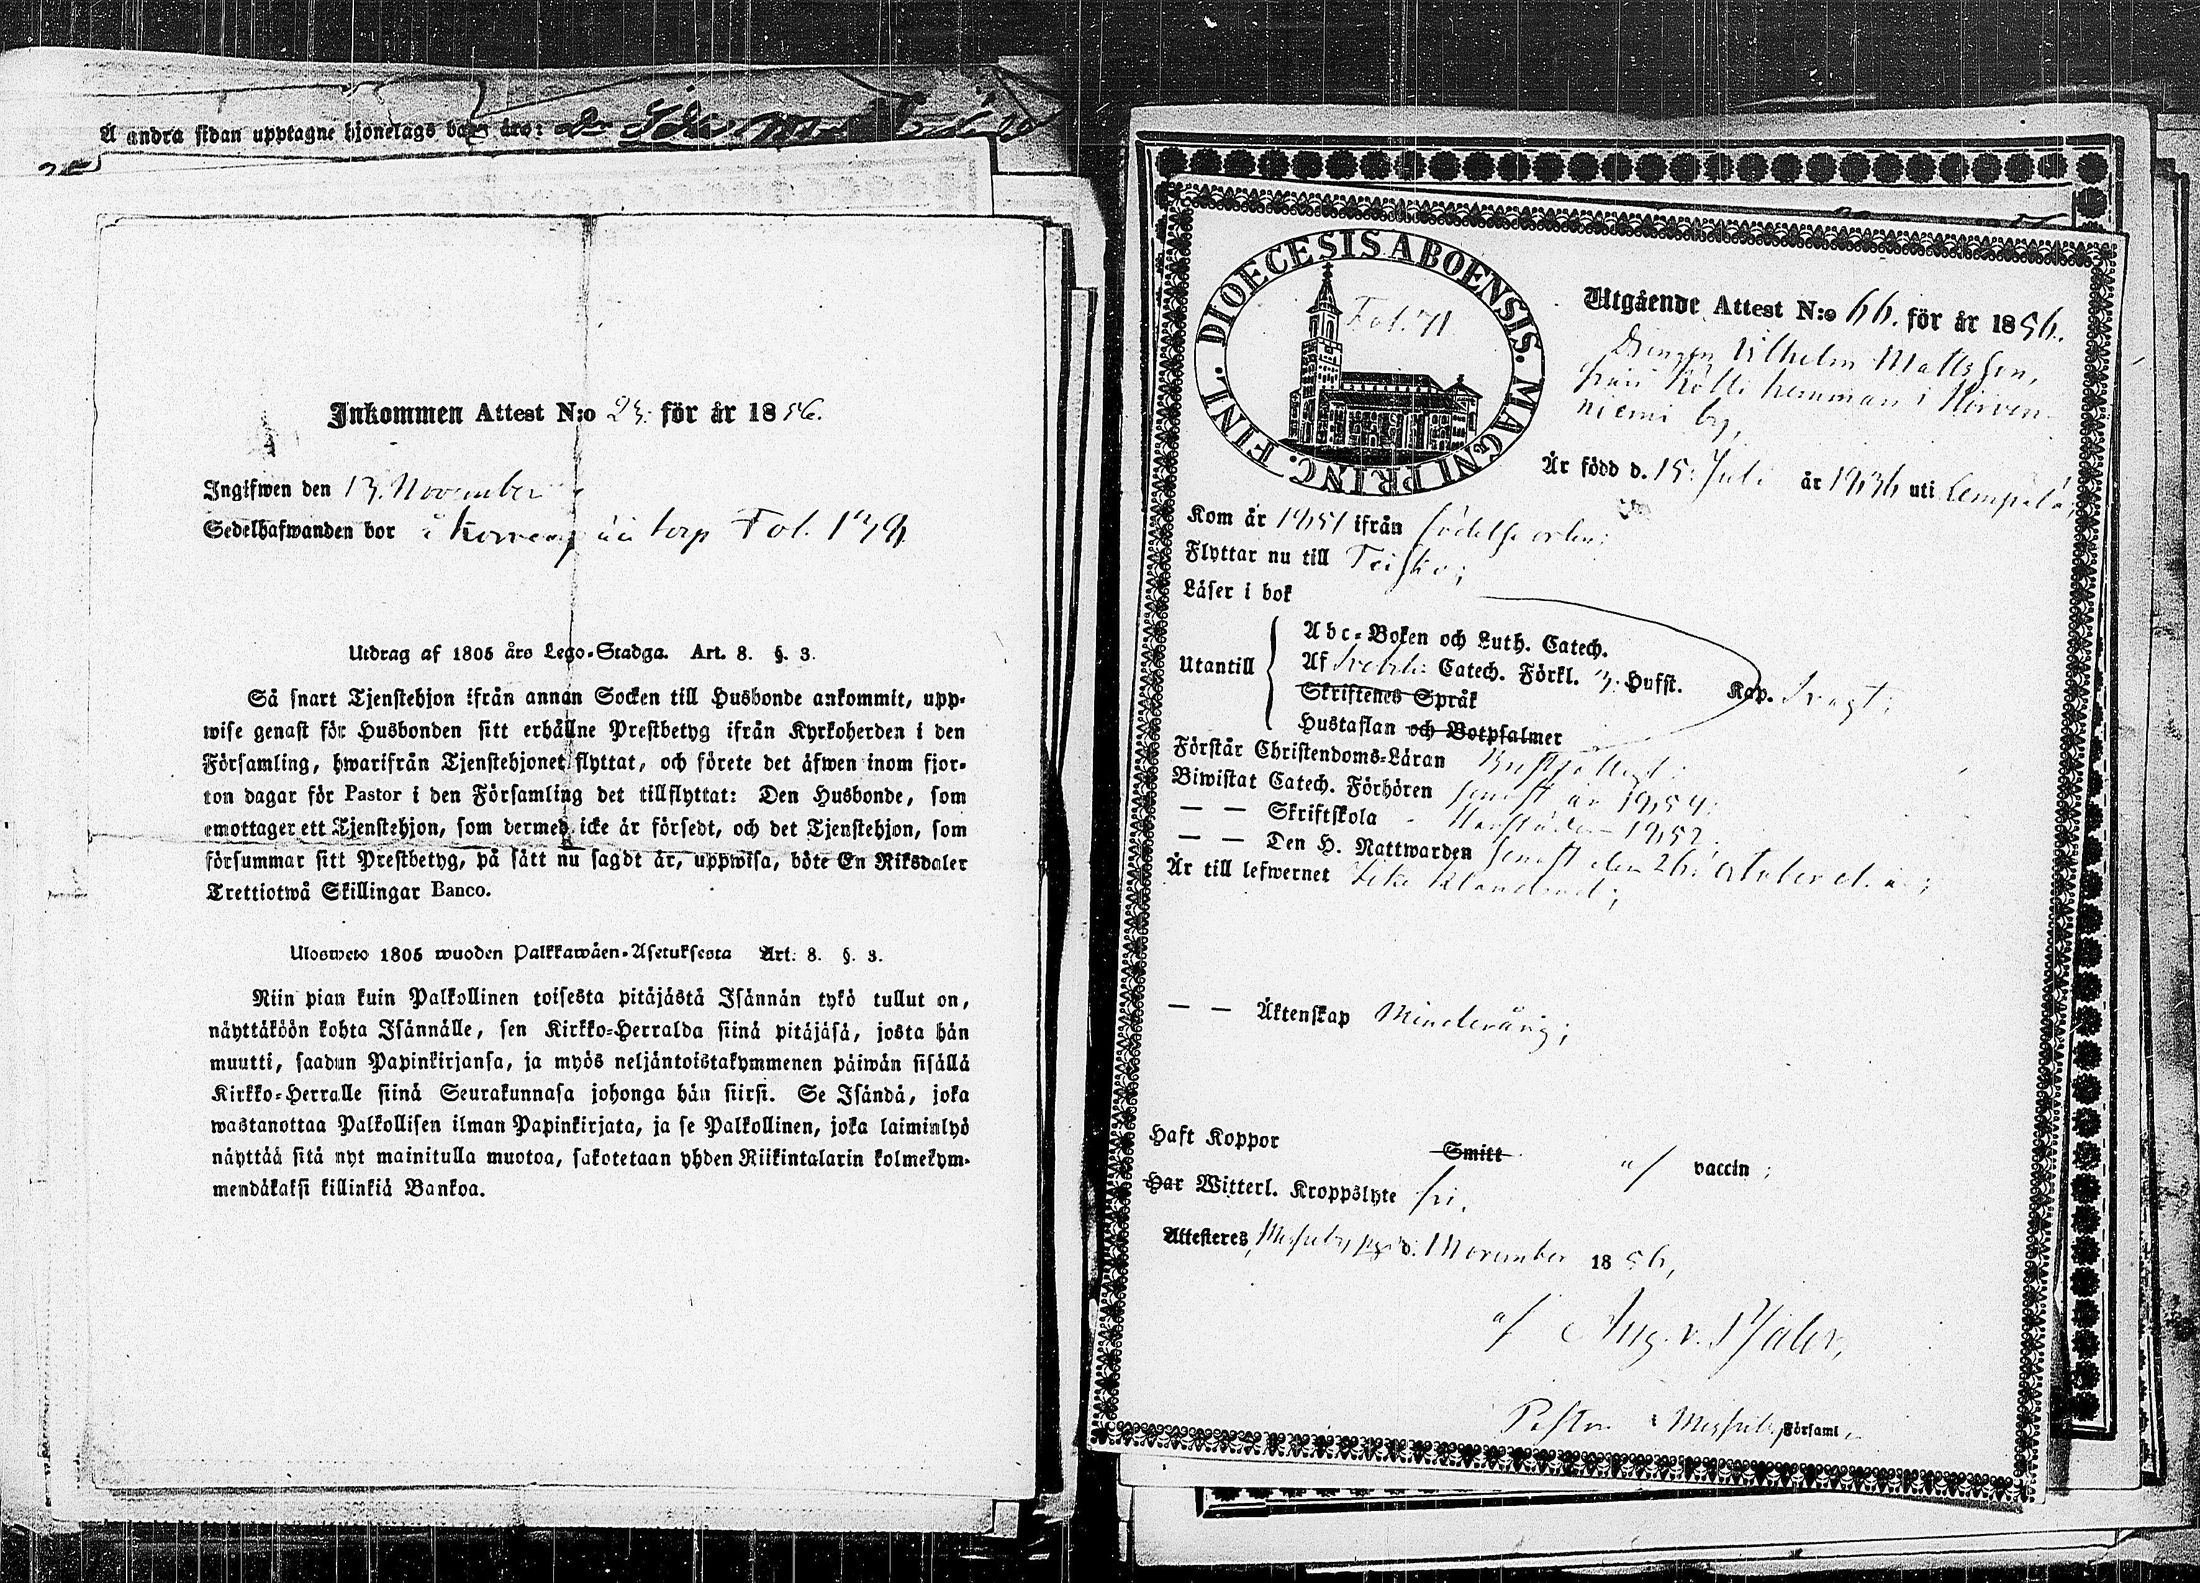 Å andra sidan upptagne hjonelags barn äro:
Inkommen Attest N:o 23. för år 1856.
Ingifwen den 13. November
Sedelhafwanden bor å torp Fol. 138
Utdrag af 1805 års Lego-Stadga. Art. 8. §. 3.
Så snart Tjenstehjon ifrån annan Socken till Husbonde ankommit, upp-
wise genast för Husbonden sitt erhållne Prestbetyg ifrån Kyrkoherden i den
Församling, hwarifrån Tjenstehjonet flyttat, och förete det äfwen inom fjor-
ton dagar för Pastor i den Församling det tillflyttat: Den Husbonde, som
emottager ett Tjenstehjon, som dermed icke är försedt, och det Tjenstehjon, som
försummar sitt Prestbetyg, på sätt nu sagdt är, uppwisa, böte En Riksdaler
Trettiotwå Skillingar Banco.
Ulosweto 1805 wuoden Palkkawäen-Asetuksesta Art: 8. §. 3.
Niin pian kuin Palkollinen toisesta pitäjästä Isännän tykö tullut on,
näyttäköön kohta Isännälle, sen Kirkko-Herralda siinä pitäjäsä, josta hän
muutti, saadun Papinkirjansa, ja myös neljäntoistakymmenen päiwän sisällä
Kirkko-Herralle siinä Seurakunnasa johonga hän siirsi. Se Isändä, joka
wastanottaa Palkollisen ilman Papinkirjata, ja se Palkollinen, joka laiminlyö
näyttää sitä nyt mainitulla muotoa, sakotetaan yhden Riikintalarin kolmekym-
mendäkaksi killinkiä Bankoa.
DIOECESIS ABOENSIS. MAGNI PRINC. FINL.
Fol. 71
Utgående Attest N:o 66. för år 1856.
Drengen Wilhelm Mattsson,
från Kölli hemman i Hirven-
niemi by,
Är född d. 15. Juli år 1836 uti Lempälä,
Kom år 1851 ifrån födelse orten;
Flyttar nu till Teisko;
Läser i bok
Utantill
Abc-Boken och Luth. Catech.
Af Svebili Catech. Förkl. 3. Hufst. Kap. Svagt;
Skriftenes Språk
Hustaflan och Botpsalmer
Förstår Christendoms-Läran
Biwistat Catech. Förhören senast år 1854;
— — Skriftskola 1852;
— — Den H. Nattwarden senast den 26. October d. å.;
Är till lefwernet Icke klandrad;
— — Äktenskap Minderårig;
Haft Koppor Smitt af vaccin;
Har Witterl. Kroppslyte fri.
Attesteres, Messuby d. November 1856,
af Aug. v. Pfaler,
Pastor i Messuby Församl